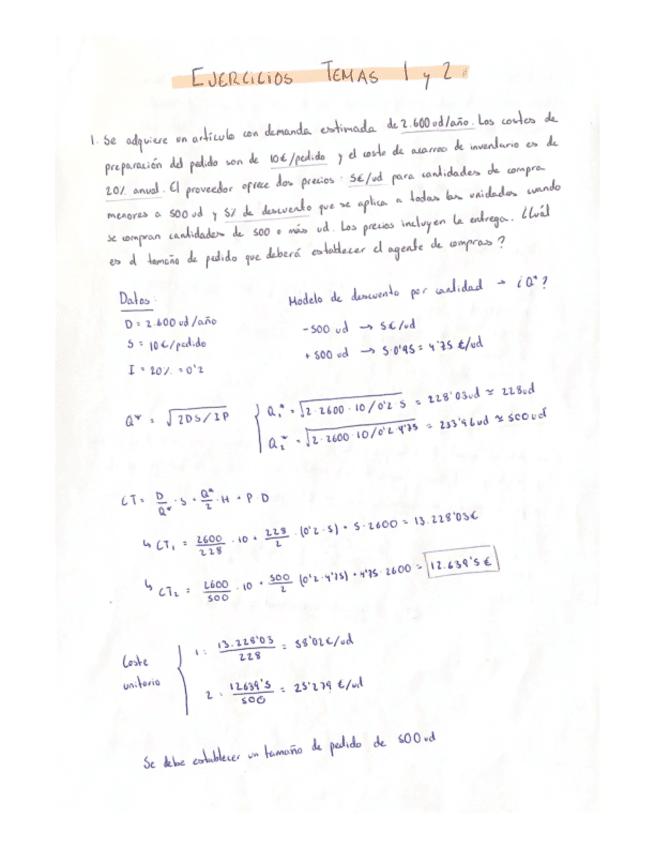 EJERCICIOS TEMAS 1 y 2.
1. Se adquiere un artículo con demanda estimada de 2.600 ud/año. Los costes de
preparación del pedido son de 10€/pedido y el coste de acarreo de inventario es de
20% anual. El proveedor ofrece dos precios: 5€/ud para cantidades de compra
menores a 500 ud y 5% de descuento que se aplica a todas las unidades cuando
se compran cantidades de 500 o más ud. Los precios incluyen la entrega. ¿Cuál
es el tamaño de pedido que deberá establecer el agente de compras?
Datos: Modelo de descuento por cantidad → ¿Q*?
D = 2.600 ud/año - 500 ud → 5€/ud
S = 10€/pedido + 500 ud → 5·0'95 = 4'75 €/ud
I = 20% = 0'2
Q* = √2DS/IP
Q₁* = √2·2600·10/0'2·5 = 228'03ud ≃ 228ud
Q₂* = √2·2600·10/0'2·4'75 = 233'96ud ≃ 500ud
CT = D/Q* · S + Q*/2 · H + P·D
↳ CT₁ = 2600/228 · 10 + 228/2 · (0'2·5) + 5·2600 = 13.228'03€
↳ CT₂ = 2600/500 · 10 + 500/2 (0'2·4'75) + 4'75·2600 = 12.639'5 €
Coste unitario
1 = 13.228'03/228 = 58'02€/ud
2 = 12639'5/500 = 25'279 €/ud
Se debe establecer un tamaño de pedido de 500 ud